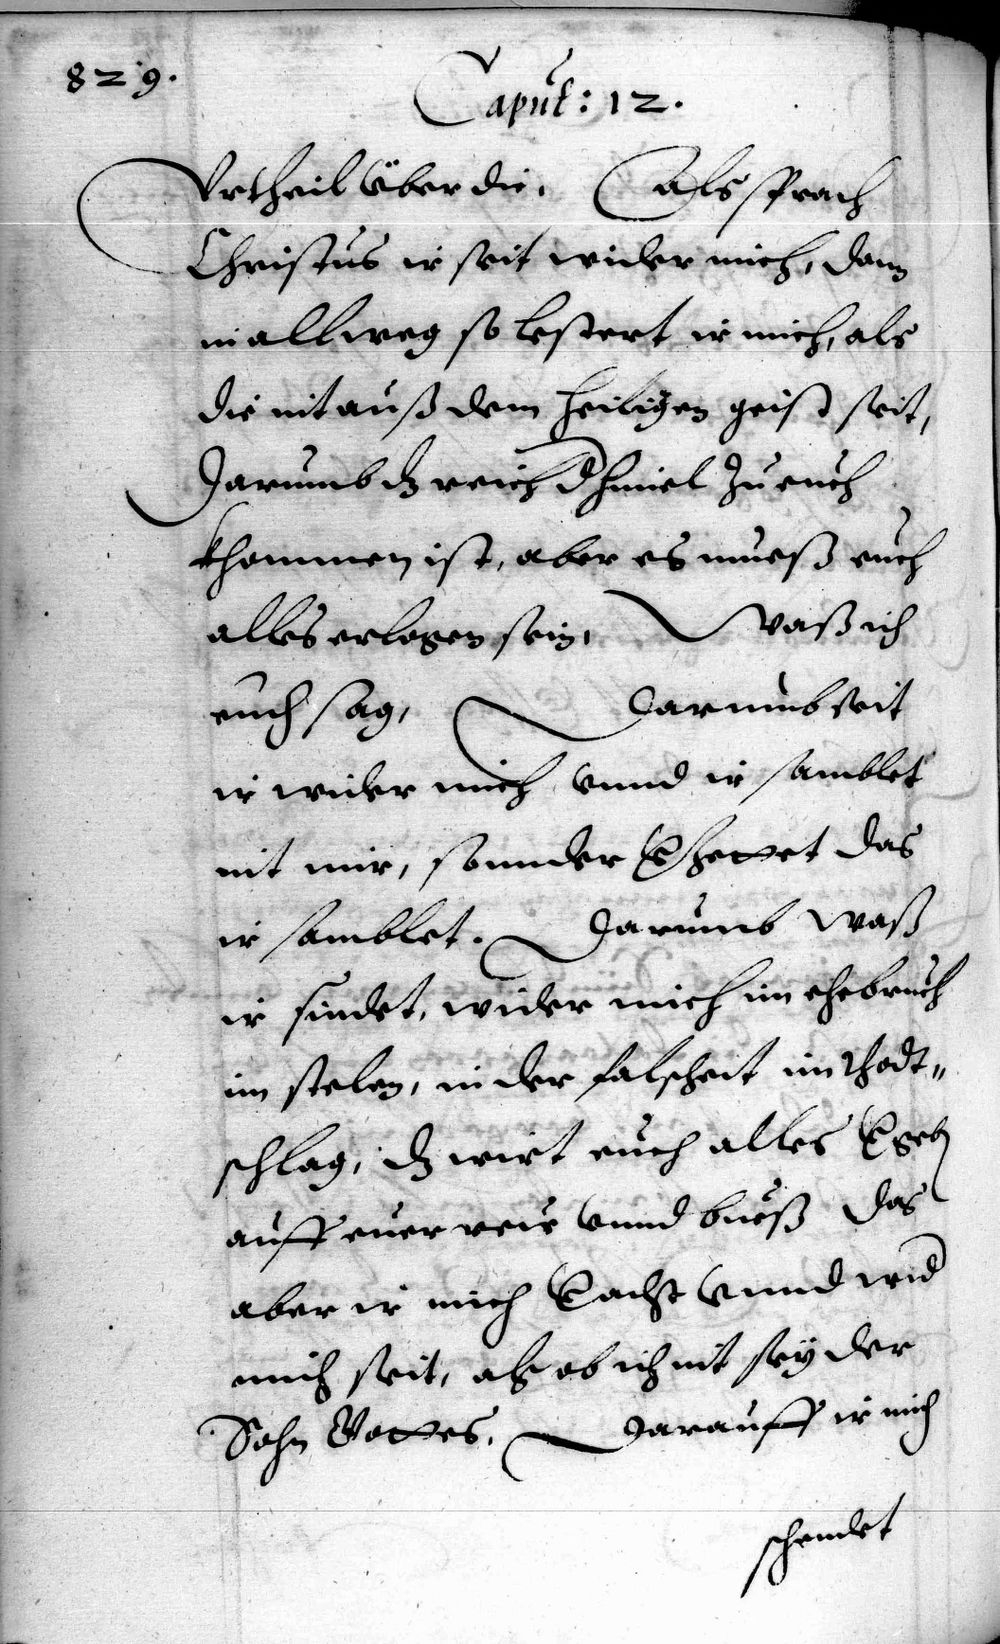 829.
Caput: 12.
Vrtheil über die, Als sprach
Christus ir seit wider mich, dann
in allweg so lestert ir mich, als
die nit auß dem heiligen geist seit,
Darumb dz reich d himel zu euch
khommen ist, aber es mueß euch
alles erlogen sein, Waß ich
euch sag, Darumb seit
ir wider mich vnnd ir samblet
nit mir, sonnder das
ir samblet. Darumb waß
ir sindet, wider mich im ehebruch
im stelen, in der falscheit im thodt„
schlag, dz wirt euch alles vgeb
auff euer reue vnnd bueß das
aber ir mich vacht vnnd wid
mich seit, alß ob ich nit sey der
Sohn Gottes, Darauff ir mich
schendet